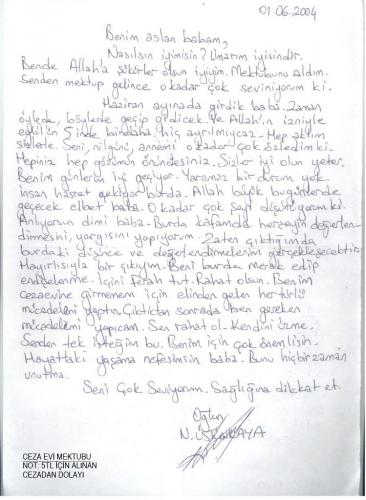 01.06.2004
Benim aslan babam,
Nasılsın iyimisin? Umarım iyisindir.
Bende Allah'a şükürler olsun iyiyim. Mektubunu aldım.
Senden mektup gelince o kadar çok seviniyorum ki.
Haziran ayınada girdik baba. Zaman
öylede, böylede geçip gidicek ve Allah'ın izniyle
eylül'ün 5'inde bindaha hiç ayrılmıycaz. Hep aklım
sizlerle. Seni, nilgünü, annemi o kadar çok özledim ki.
Hepiniz hep gözümün önündesiniz. Sizler iyi olun yeter.
Benim günlerim iyi geçiyor. Yaramaz bir durum yok.
insan hasret çekiyor burda. Allah büyük bugünlerde
geçecek elbet baba. O kadar çok şey düşünüyorum ki.
Anlıyorsun dimi baba. Burda kafamda herşeyin değerlen-
dirmesini, yargısını yapıyorum. Zaten çıktığımda
burdaki düşünce ve değerlendirmelerim gerçekleşecektir.
Hayırlısıyla bir çıkıyım. Beni burda merak edip
endişelenme. İçini ferah tut. Rahat olsun. Benim
cezaevine girmemem için elinden gelen her türlü
mücadeleni yaptın. Çıktıktan sonrada ben gereken
mücadelemi yapıcam. Sen rahat ol. Kendini üzme.
Senden tek isteğim bu. Benim için çok önemlisin.
Hayattaki yaşama nefesimsin baba. Bunu hiçbir zaman
unutma.
Seni Çok Seviyorum. Sağlığına dikkat et.
Oğlun
CEZA EVİ MEKTUBU
NOT: 5TL İÇİN ALINAN
CEZADAN DOLAYI